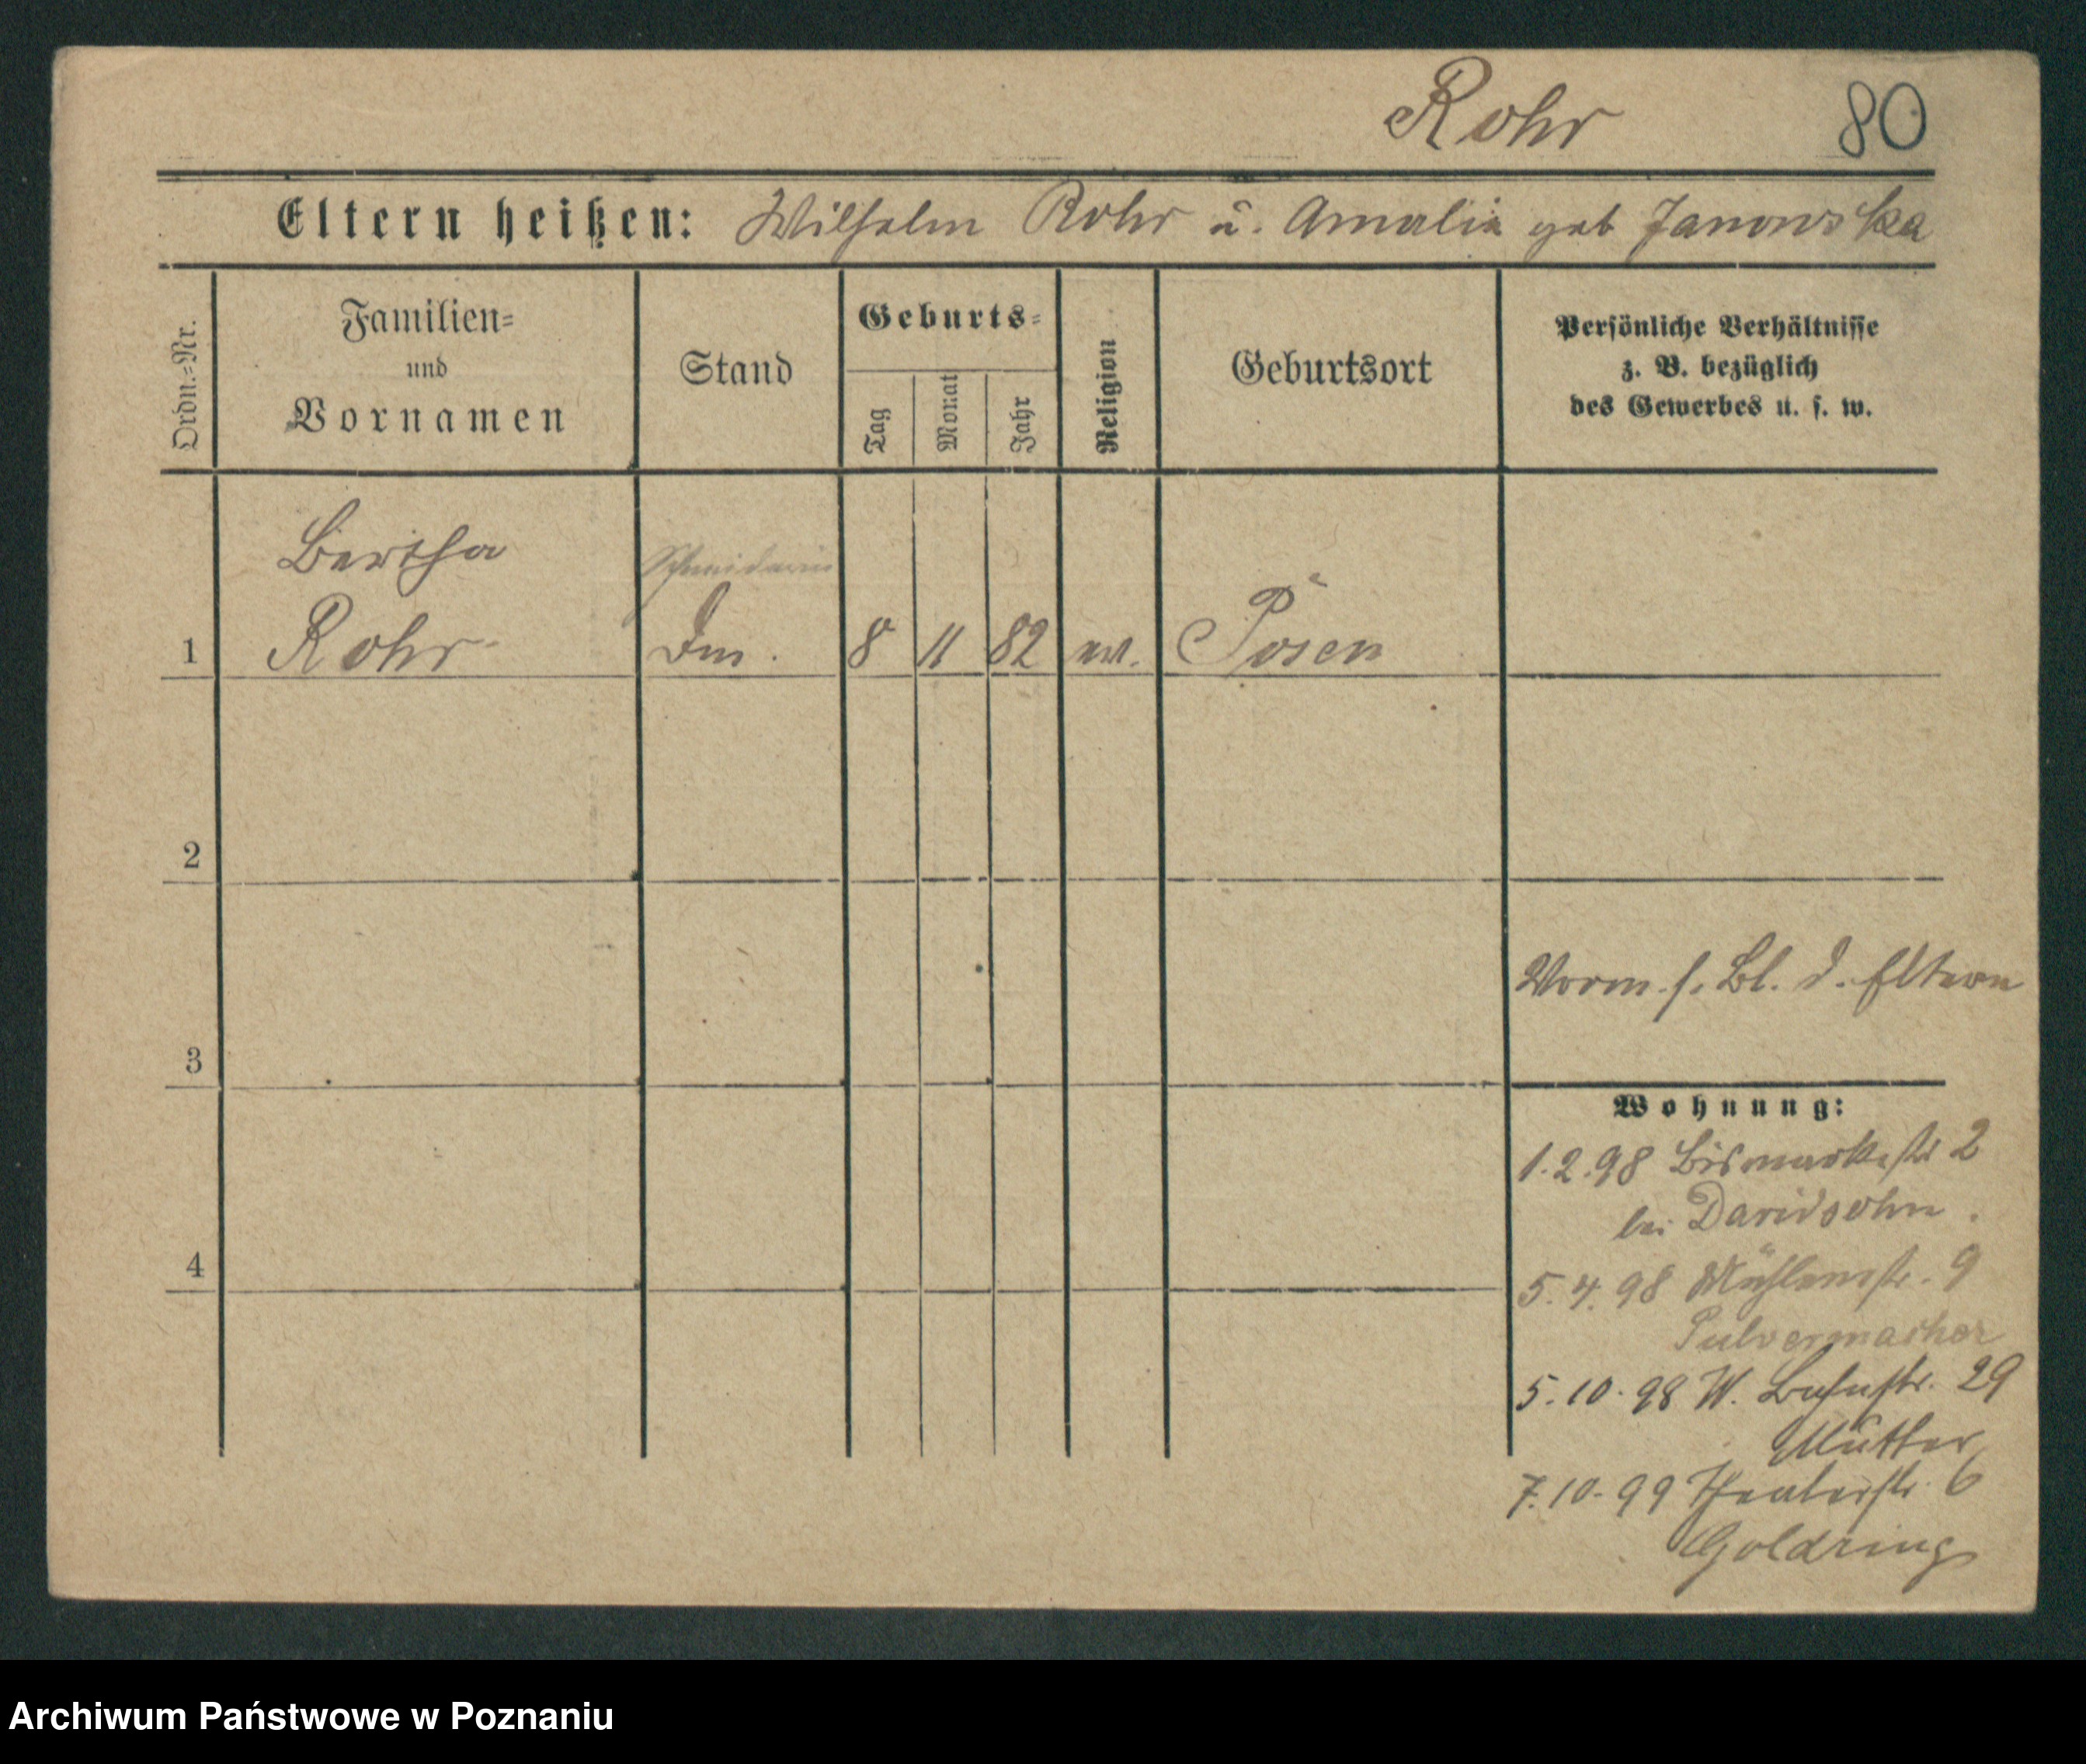 Rohr 80
Eltern heißen: Wilhelm Rohr u. Amalie geb Janowska
Ordn.=Nr.
Familien=
und
Vornamen
Stand
Geburts=
Tag
Monat
Jahr
Religion
Geburtsort
Persönliche Verhältnisse
z. B. bezüglich
des Gewerbes u. s. w.
Bertha
Schneiderin
1 Rohr Dm. 8 11 82 ev. Posen
2
Vorm. s. Bl. d. Eltern
3
Wohnung:
1.2.98 Bismarkstr 2
bei Davidsohn.
4
5.4.98 Mühlenstr. 9
Pulvermacher
5.10.98 W. 29
Mutter
7.10.99 Theaterstr. 6
Goldring
Archiwum Państwowe w Poznaniu